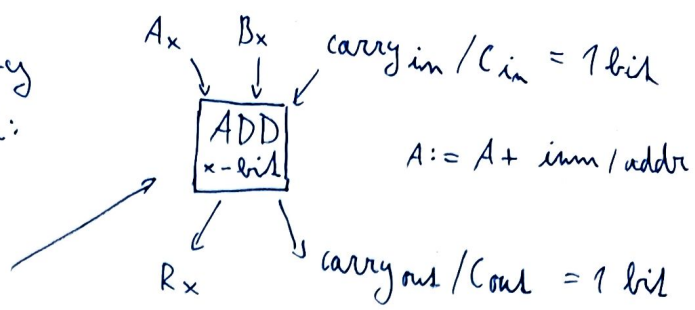 Aₓ Bₓ carry in / C in = 1 bit
y
:
ADD
x-bit
A := A + imm / addr
Rₓ carry out / C out = 1 bit